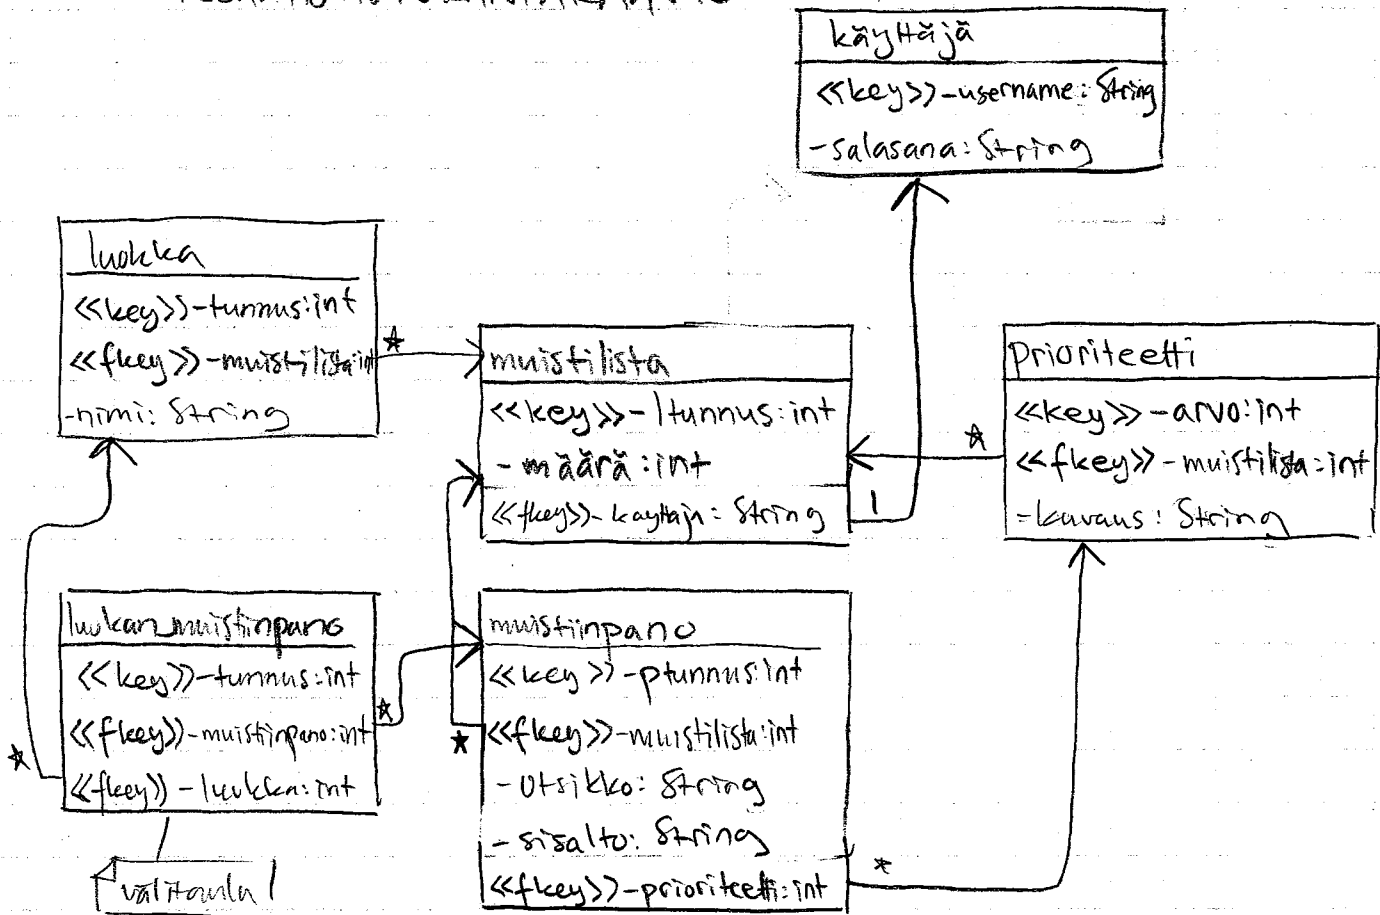 käyttäjä
<<key>>-username: String
-salasana: String
luokka
<<key>>-tunnus:int
<<fkey>>-muistilista:int
-nimi: String
*
muistilista
<<key>>-ltunnus:int
-määrä:int
<<fkey>>-kayttaja: String
1
prioriteetti
<<key>>-arvo:int
<<fkey>>-muistilista:int
-kuvaus: String
*
luokan_muistiinpano
<<key>>-tunnus:int
<<fkey>>-muistiinpano:int
<<fkey>>-luokka:int
*
*
välitaulu
muistiinpano
<<key>>-ptunnus:int
<<fkey>>-muistilista:int
-otsikko: String
-sisalto: String
<<fkey>>-prioriteetti:int
*
*